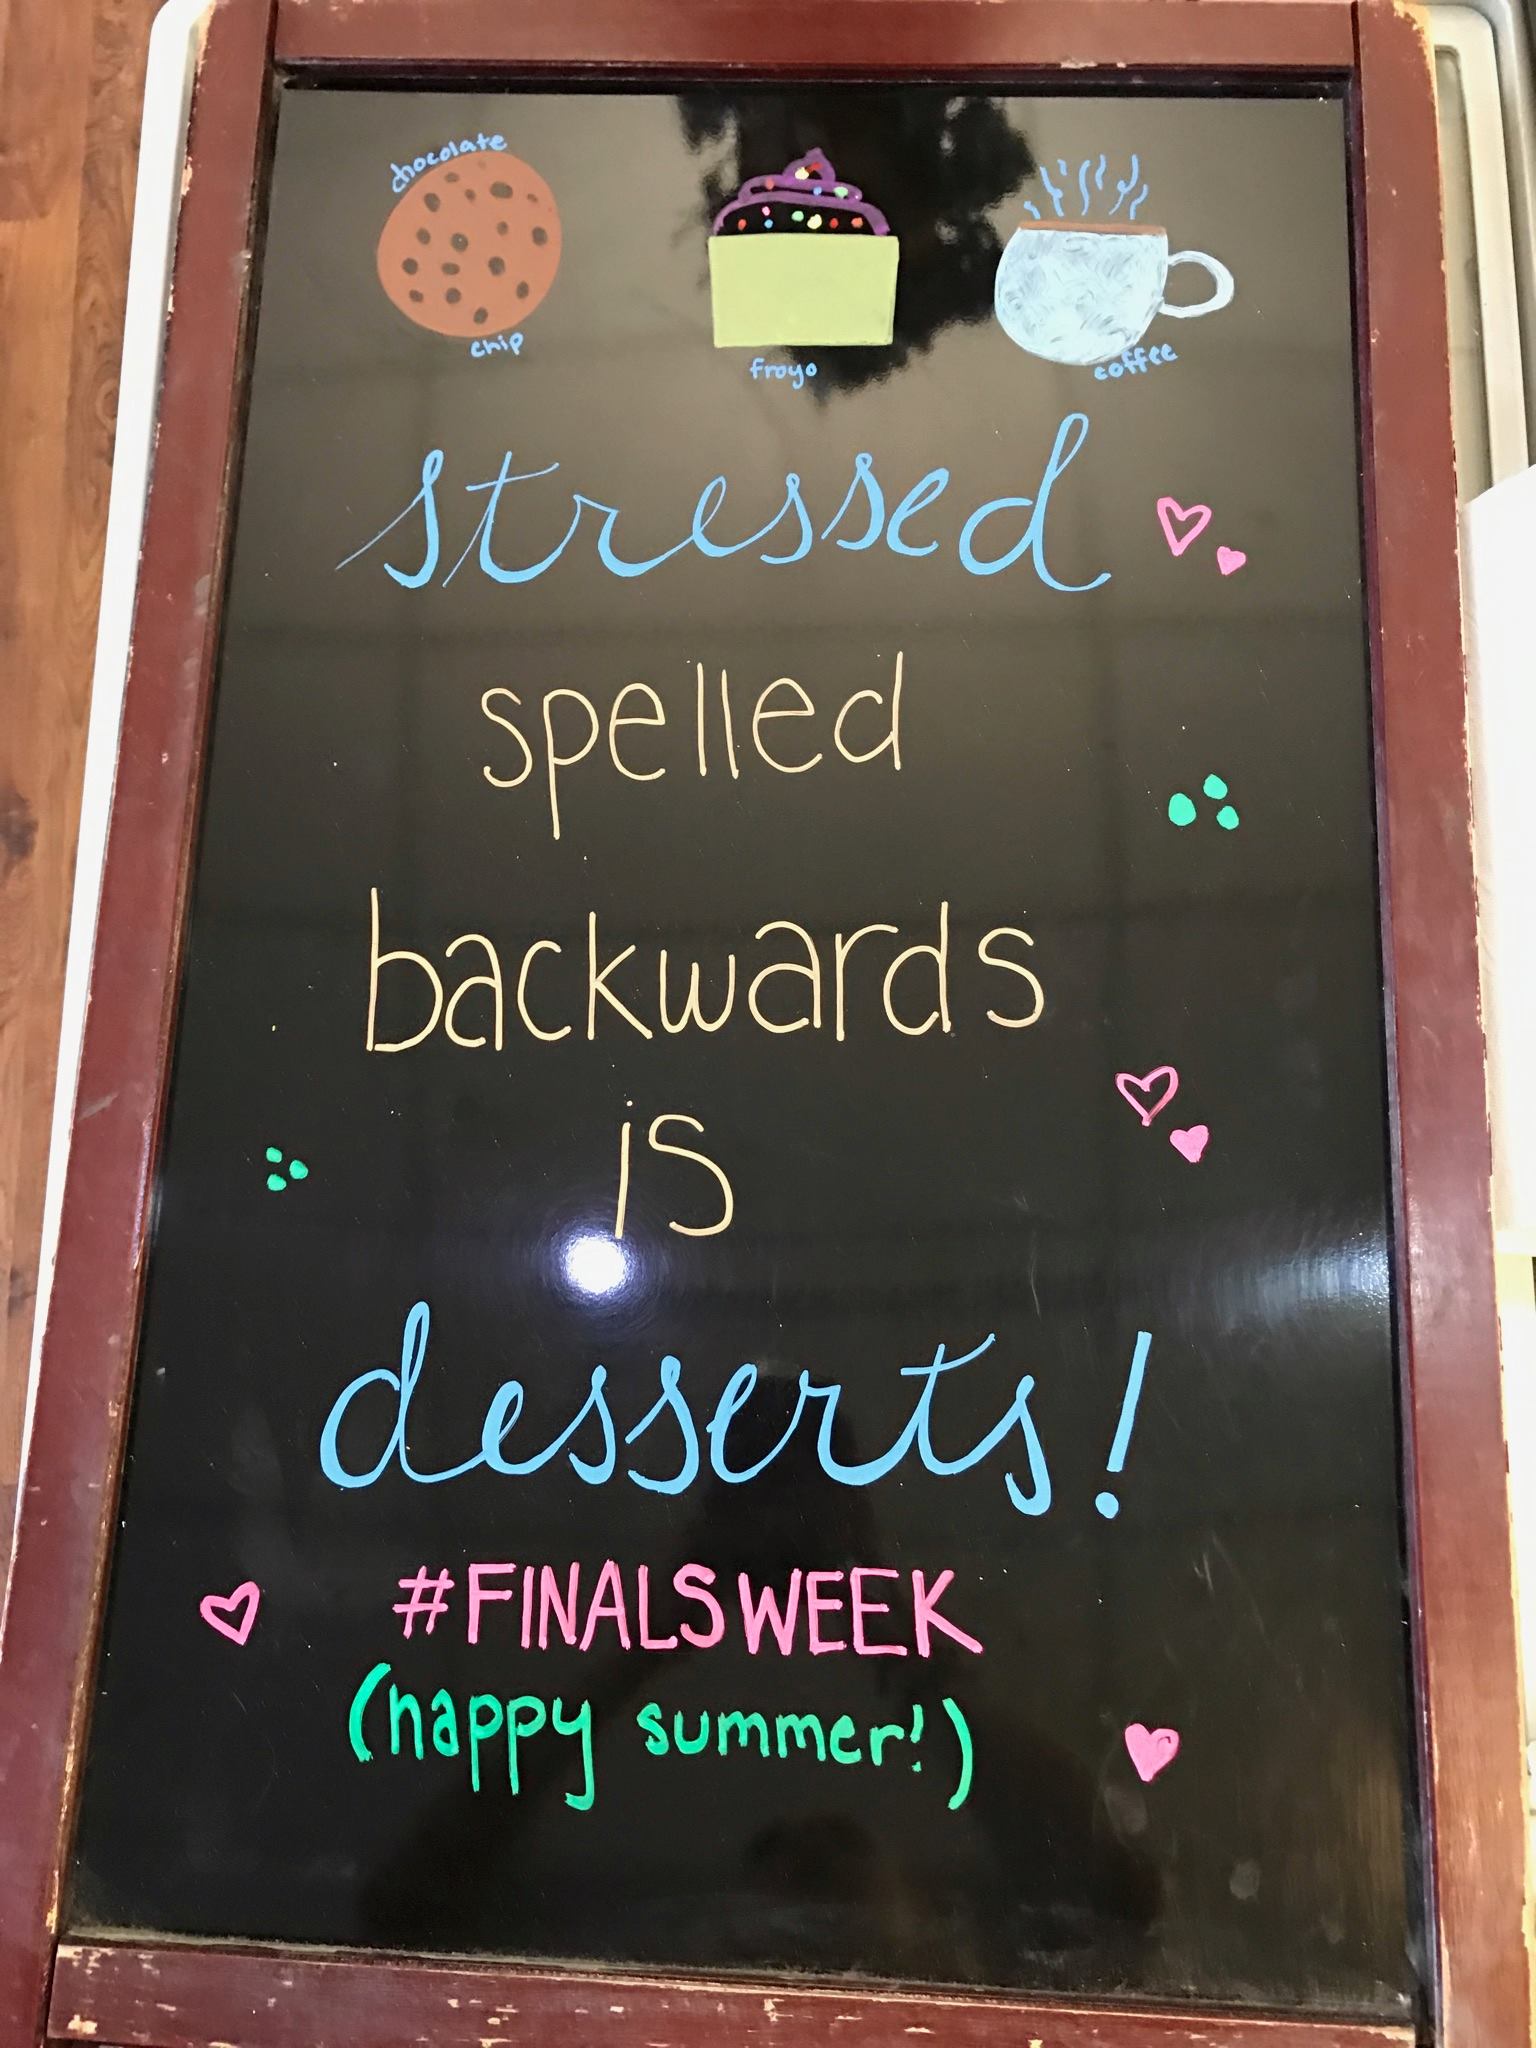 chocolate
chip
froyo
coffee
stressed
spelled
backwards
is
desserts!
#FINALSWEEK
(happy summer!)